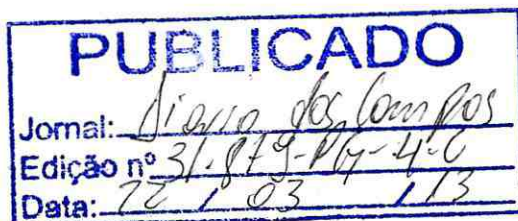 PUBLICADO
Jornal: Diario dos Campos
Edição nº 31.879-PG-4-C
Data: 22 / 03 / 13